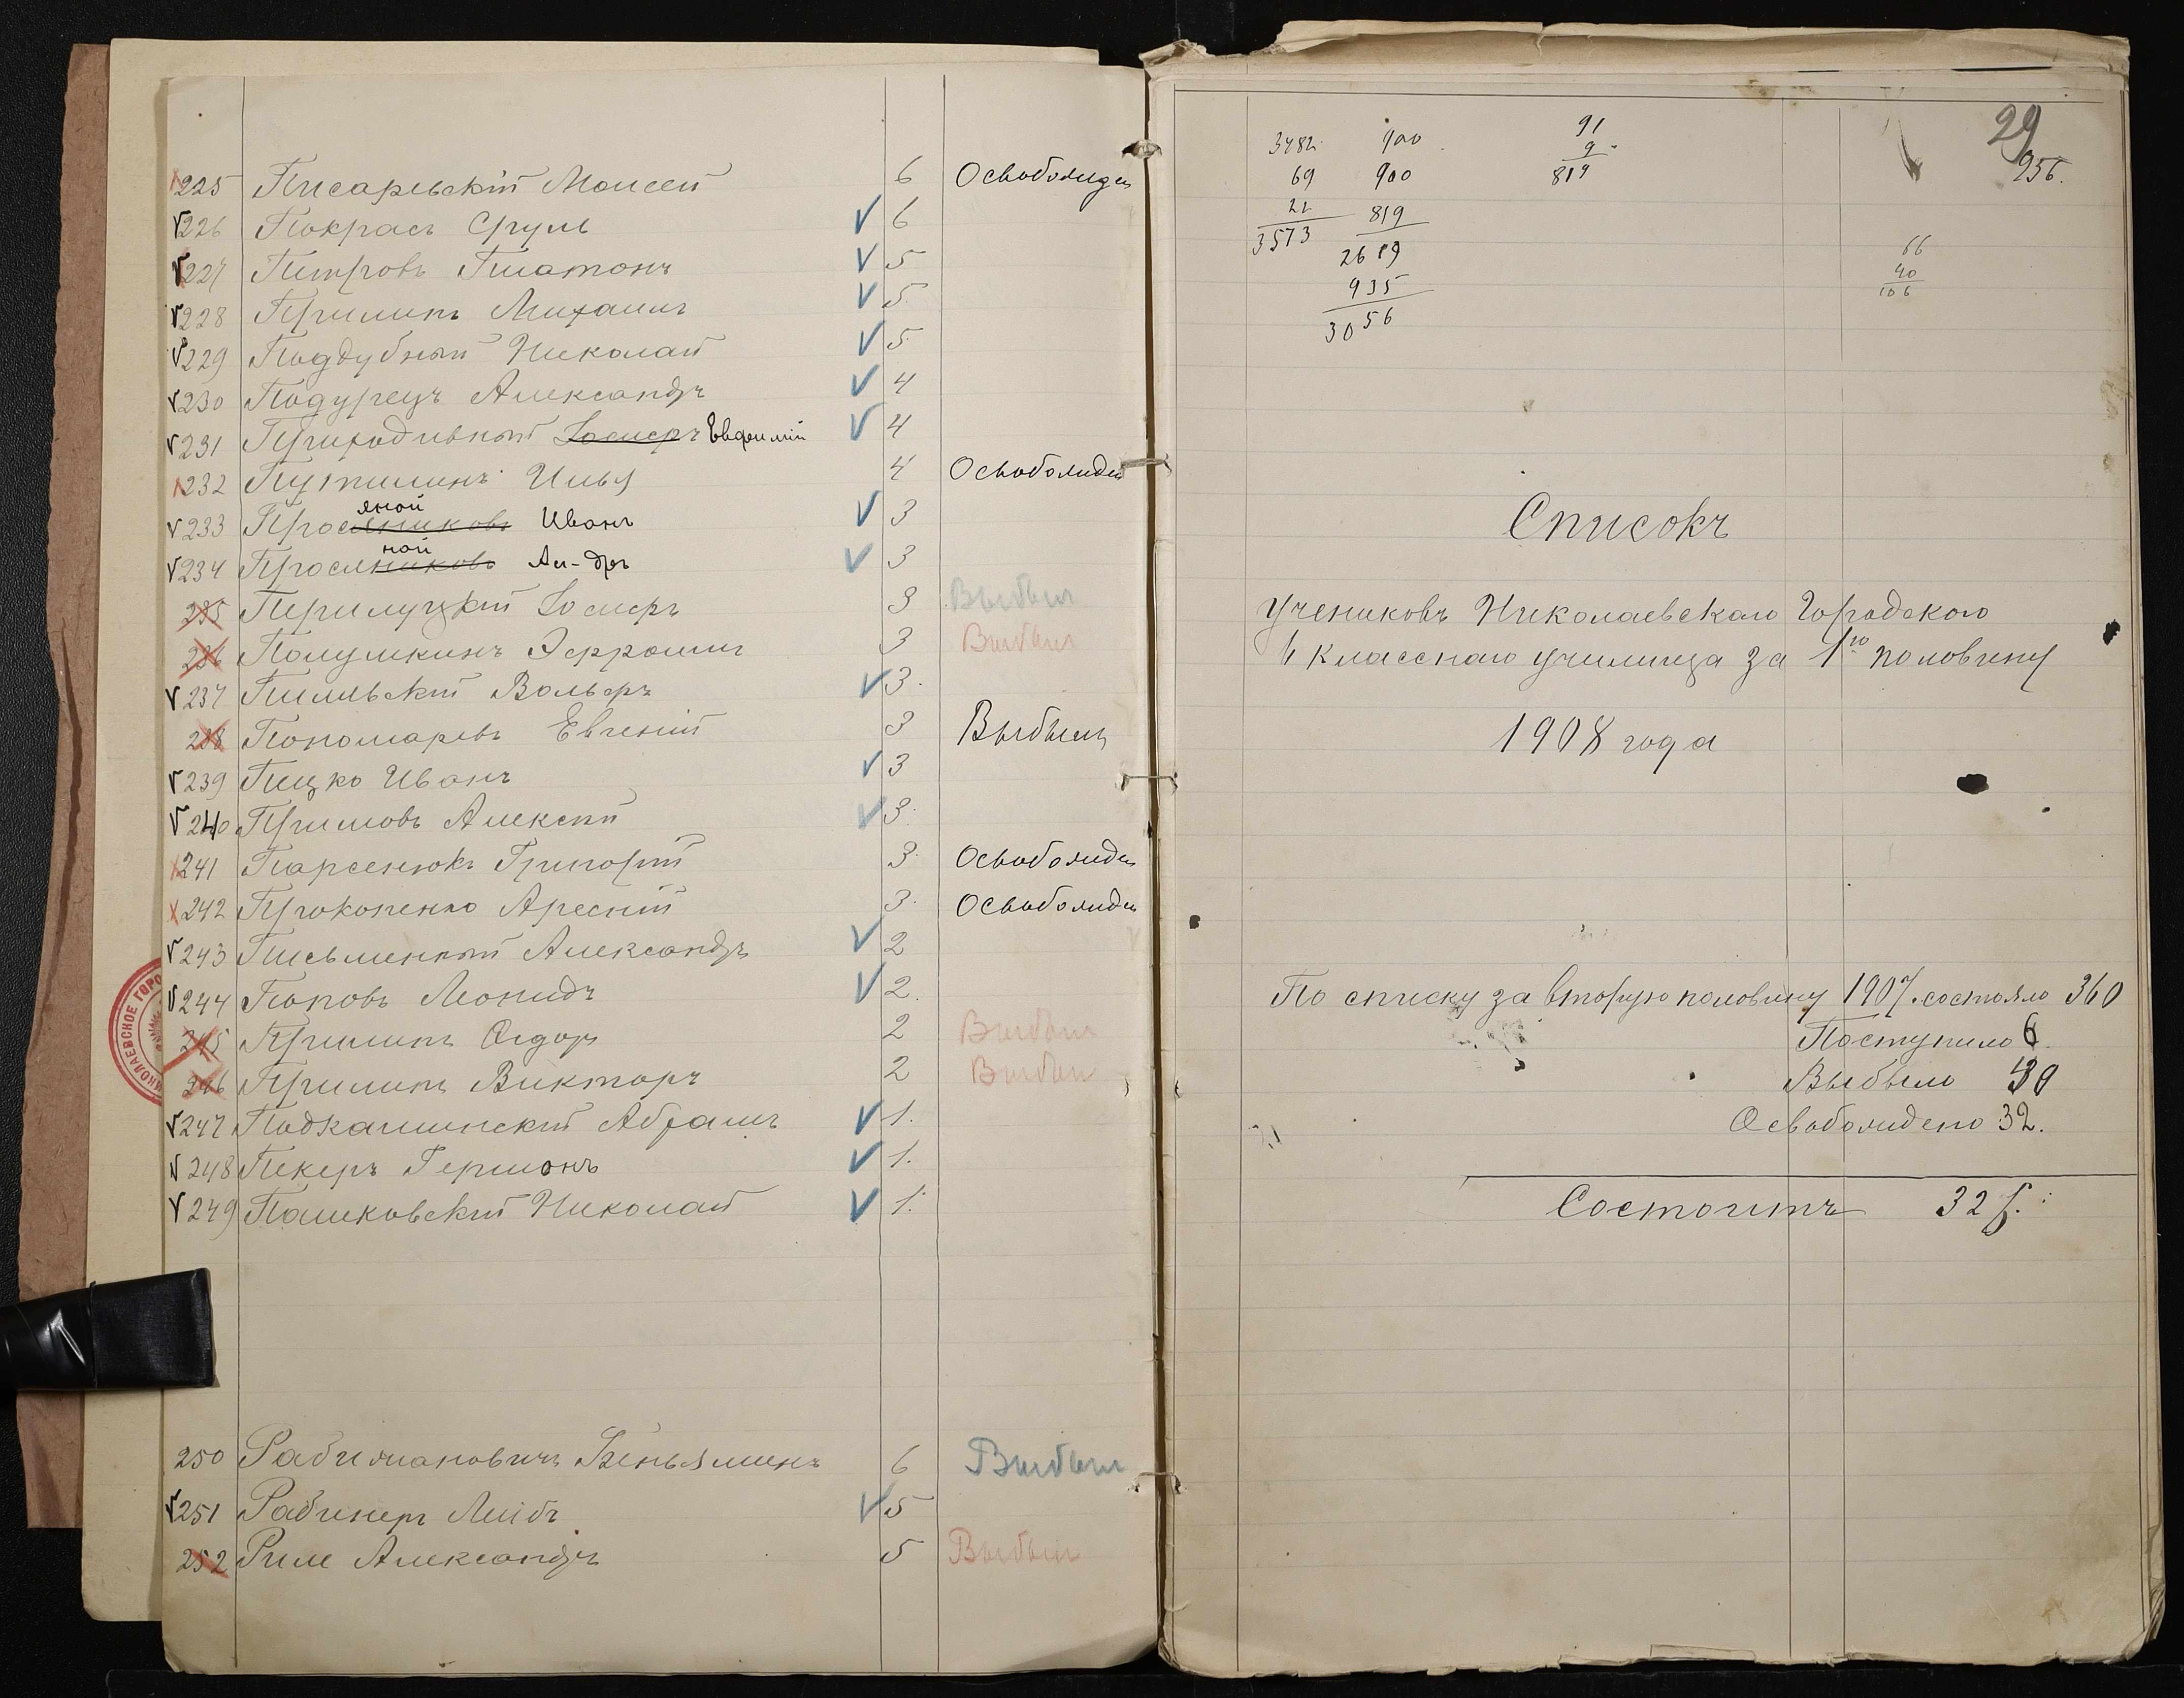 225 Писаревскій Моисей 6 Освобожден
226 Покрасъ Сруль 6
227 Петровъ Платонъ 5
228 Прилипъ Михаилъ 5
229 Поддубный Николай 5
230 Подурецъ Александръ 4
231 Приходивный Іосифъ Евфимій 4
232 Путилинъ Илья 4 Освобожден
яной
233 Просяниковъ Иванъ 3
ной
234 Просяниковъ Ал-дръ 3
235 Перилуцкій Іосифъ 3 Выбылъ
236 Полушкинъ Эфроимъ 3 Выбылъ
237 Пилявскій Вольфъ 3.
238 Пономаревъ Евгеній 3 Выбылъ
239 Пицко Иванъ 3
240 Примовъ Алексѣй 3.
241 Парсенюкъ Григорій 3. Освобожден
242 Прокопенко Арсеній 3. Освобожден
243 Письменный Александръ 2
244 Поповъ Леонидъ 2.
245 Прилипъ Ѳедоръ 2 Выбылъ
246 Прилипъ Викторъ 2 Выбыл
247 Подкаминскій Абрамъ 1.
248 Пекеръ Гершонъ 1.
249 Пашковскій Николай 1.
НИКОЛАЕВСКОЕ ГОРО
250 Рабиновичъ Веньяминъ 6 Выбылъ
251 Рабинеръ Лейбъ 5
252 Риле Александръ 5 Выбылъ
29
3482 900 91
69 900 9
21 819 819
3573 2619
935
3056
956.
66
40
106
Списокъ
Учениковъ Николаевскаго Городского
4 класснаго училища за 1ю половину
1908 года
По списку за вторую половину 1907. состояло 360
Поступило 6.
Выбыло 39
Освобождено 32.
Состоитъ 32